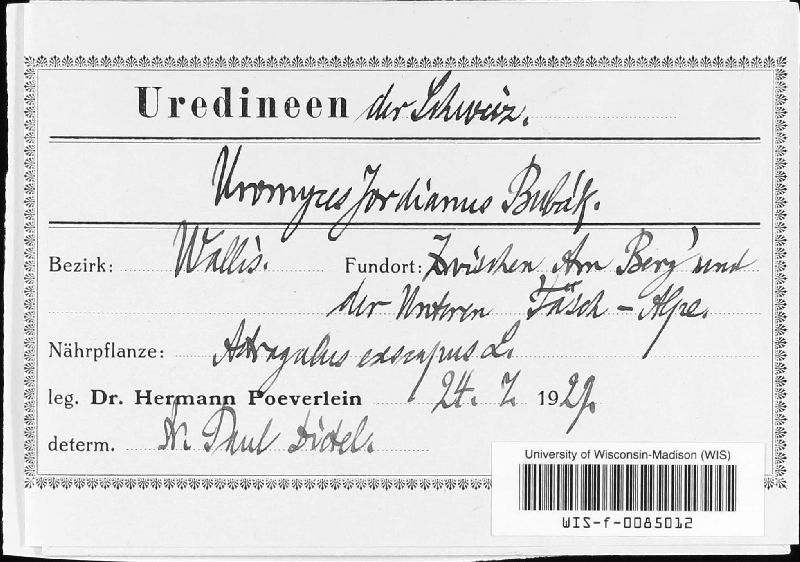 Uredineen der Schweiz.
Uromyces Jordianus Bubák.
Bezirk: Wallis. Fundort: Zwischen Am Berg und
der Unteren Täsch-Alpe.
Nährpflanze: Astragalus exscapus L.
leg. Dr. Hermann Poeverlein 24. 7. 1929.
determ. Dr. Paul Dietel.
University of Wisconsin-Madison (WIS)
WIS-f-0085012